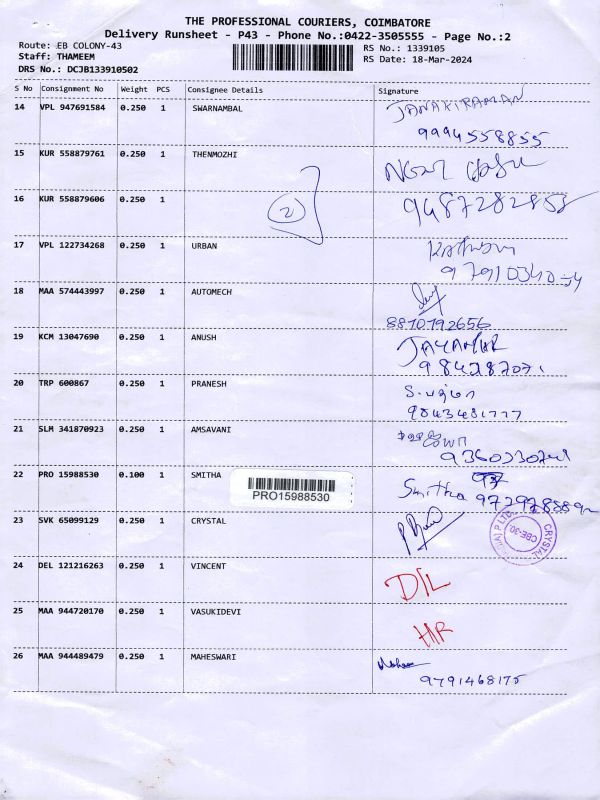 THE PROFESSIONAL COURIERS, COIMBATORE
Delivery Runsheet - P43 - Phone No.:0422-3505555 - Page No.:2
Route: EB COLONY-43
Staff: THAMEEM
DRS No.: DCJB133910502
RS No.: 1339105
RS Date: 18-Mar-2024
S No Consignment No Weight PCS Consignee Details Signature
14 VPL 947691584 0.250 1 SWARNAMBAL JANAKIRAMAN
9994558855
15 KUR 558879761 0.250 1 THENMOZHI
16 KUR 558879606 0.250 1 9487282858
2
17 VPL 122734268 0.250 1 URBAN
18 MAA 574443997 0.250 1 AUTOMECH
8810792656
19 KCM 13047690 0.250 1 ANUSH
20 TRP 600867 0.250 1 PRANESH
9843481777
21 SLM 341870923 0.250 1 AMSAVANI
22 PRO 15988530 0.100 1 SMITHA Smitha
PRO15988530
23 SVK 65099129 0.250 1 CRYSTAL
CRYSTAL P LTD. CBE-30.
24 DEL 121216263 0.250 1 VINCENT D/L
25 MAA 944720170 0.250 1 VASUKIDEVI
26 MAA 944489479 0.250 1 MAHESWARI
9791468175